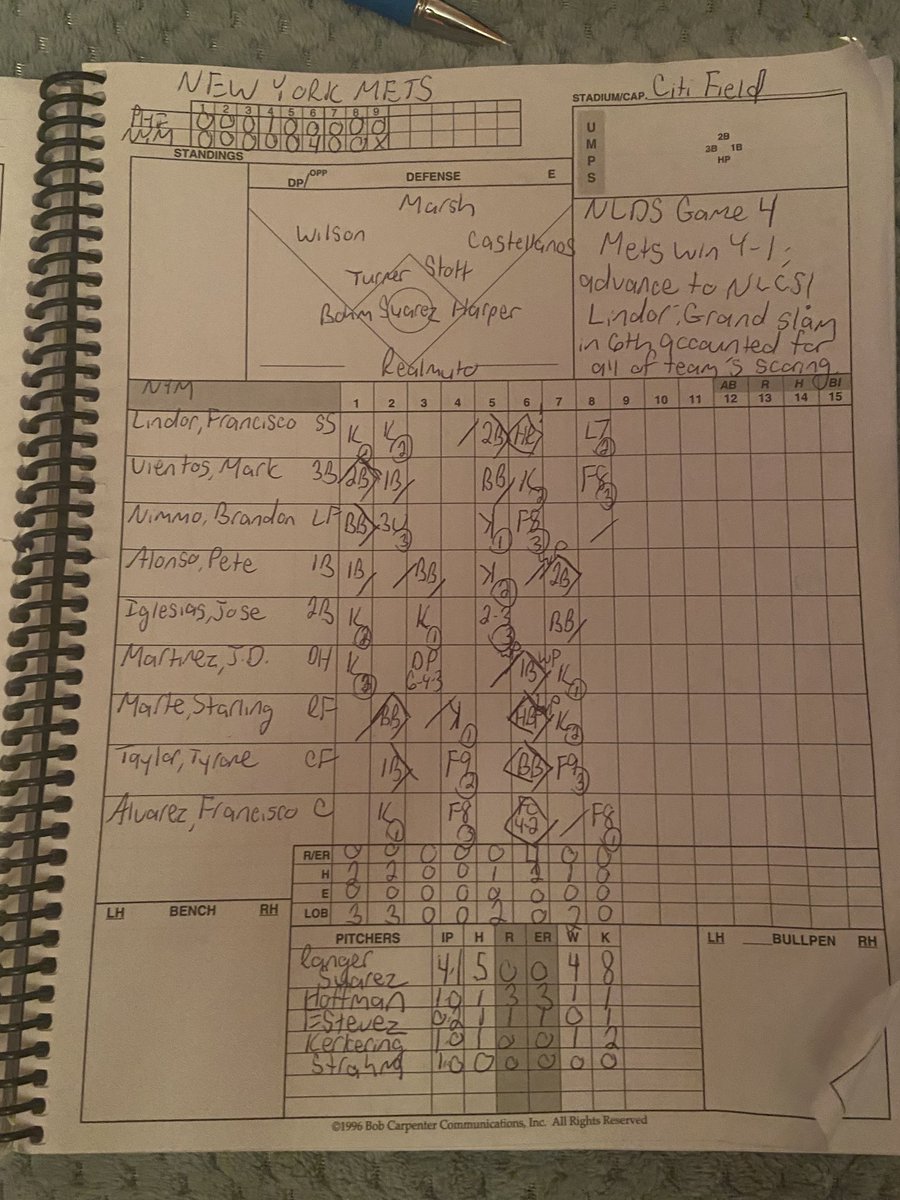 NEW YORK METS
STADIUM/CAP. Citi Field
1 2 3 4 5 6 7 8 9
PHI 0 0 0 0 0 0 0 0 0
NYM 0 0 0 0 0 4 0 0 X
STANDINGS
UMPS
2B
3B 1B
HP
DP/OPP DEFENSE E
Marsh
Wilson Castellanos
Turner Stott
Bohm Suarez Harper
Realmuto
NLDS Game 4
Mets win 4-1;
advance to NLCS!
Lindor: Grand slam
in 6th accounted for
all of team's scoring.
NYM 1 2 3 4 5 6 7 8 9 10 11 12 13 14 15
AB R H BI
Lindor, Francisco SS K K 2 2B HR L7 2
Vientos, Mark 3B 2B 1B BB K 2 F8 3
Nimmo, Brandon LF BB 3U 3 K 1 F8 3
Alonso, Pete 1B 1B BB K 2 2B
Iglesias, Jose 2B K 2 K 1 2-3 3 BB
Martinez, J.D. DH K 3 DP 6-4-3 1B WP K 1
Marte, Starling RF BB K 1 HBP K 2
Taylor, Tyrone CF 1B F9 2 BB F9 3
Alvarez, Francisco C K 1 F8 3 FC 4-2 F8 1
R/ER 0 0 0 0 0 4 0 0
H 2 2 0 0 1 2 1 0
E 0 0 0 0 0 0 0 0
LOB 3 3 0 0 2 0 2 0
LH BENCH RH
PITCHERS IP H R ER W K
Ranger Suarez 4.1 5 0 0 4 8
Hoffman 1.0 1 3 3 1 1
Estevez 0.2 1 1 1 0 1
Kerkering 1.0 1 0 0 1 2
Strahm 1.0 0 0 0 0 0
LH BULLPEN RH
©1996 Bob Carpenter Communications, Inc. All Rights Reserved